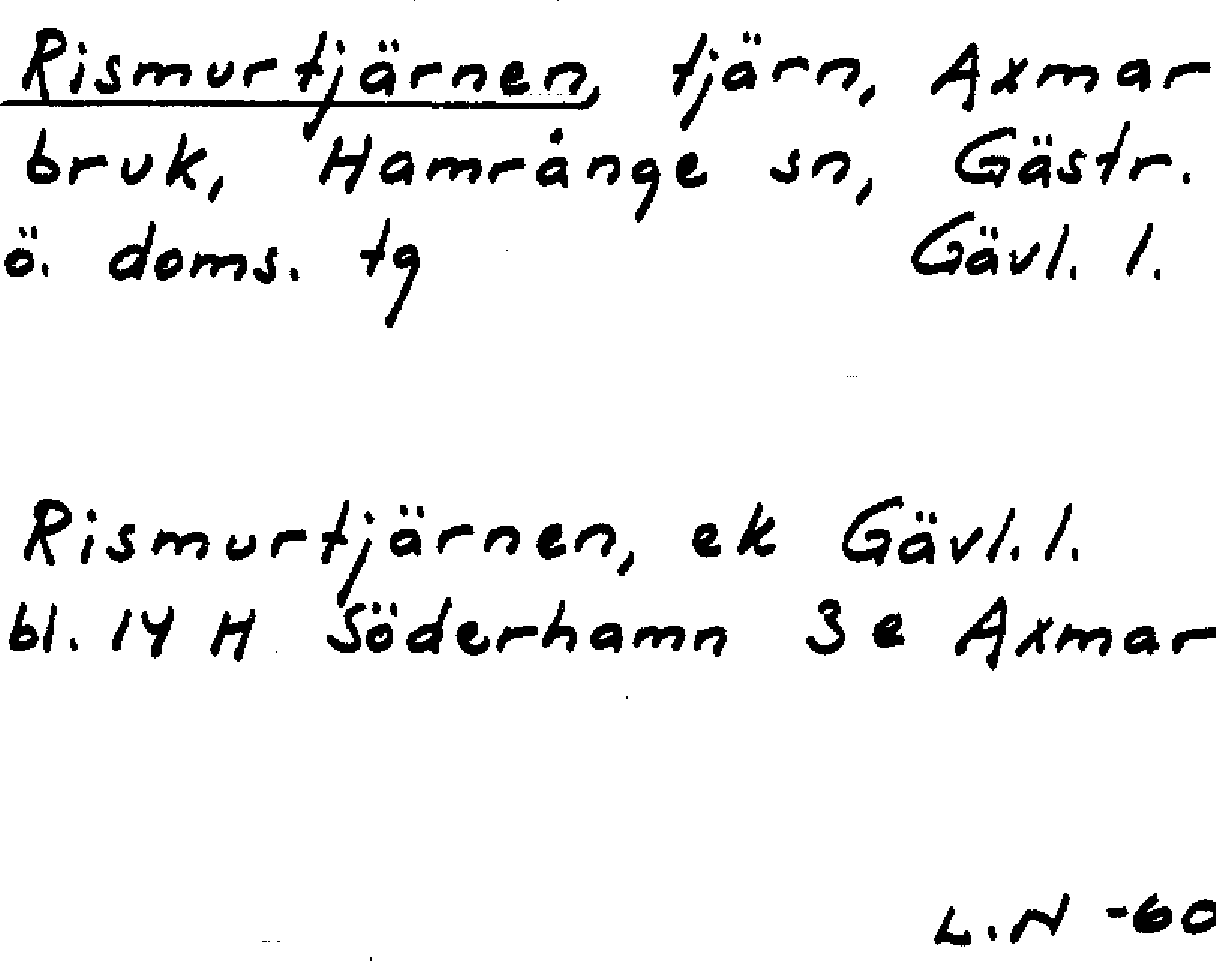 Rismurtjärnen, tjärn, Axmar
bruk, Hamrånge sn, Gästr.
ö. doms. tg Gävl. l.
Rismurtjärnen, ek Gävl. l.
bl. 14 H Söderhamn 3 e Axmar
L.N -60